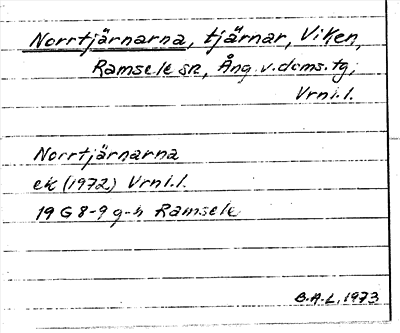 Norrtjärnarna, tjärnar, Viken,
Ramsele sn, Ång. v. doms. tg,
Vrni.l.
Norrtjärnarna
ek (1972) Vrni.l.
19 G 8-9 g-h Ramsele
B.A.L. 1973